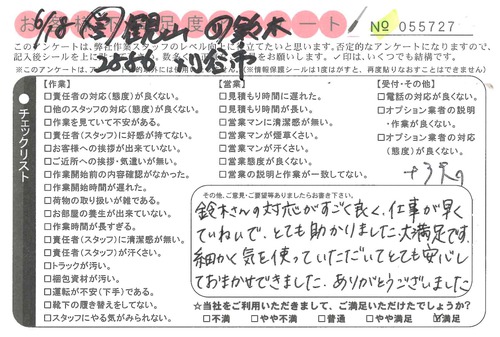 お客様満足度アンケート № 055727
このアンケートは、弊社作業スタッフのレベル向上に役立てたいと思います。否定的なアンケートになりますので、
記入後シールを上に
お願いします。✓印は、いくつでも結構です。
※このアンケートは、
(※情報保護シールは1度がすと、再度貼りなおすことはできません)
チェックリスト
【作業】
□責任者の対応(態度)が良くない。
□他のスタッフの対応(態度)が良くない。
□作業を見ていて不安がある。
□責任者(スタッフ)に好感が持てない。
□お客様への挨拶が出来ていない。
□ご近所への挨拶・気遣いが無い。
□作業開始前の内容確認がなかった。
□作業開始時間が遅れた。
□荷物の取り扱いが雑である。
□お部屋の養生が出来ていない。
□作業時間が長すぎる。
□責任者(スタッフ)に清潔感が無い。
□責任者(スタッフ)が汗くさい。
□トラックが汚い。
□梱包資材が汚い。
□運転が不安(下手)である。
□靴下の履き替えをしてない。
□スタッフにやる気がみられない。
【営業】
□見積もり時間に遅れた。
□見積もり時間が長い。
□営業マンに清潔感が無い。
□営業マンが煙草くさい。
□営業マンが汗くさい。
□営業態度が良くない。
□営業の説明と作業が一致してない。
【受付・その他】
□電話の対応が良くない。
□オプション業者の説明
・作業が良くない。
□オプション業者の対応
(態度)が良くない。
その他、ご意見・ご要望等ありましたらお書き下さい。
鈴木さんの対応がすごく良く、仕事が早く
ていねいで、とても助かりました。大満足です。
細かく気を使っていただいてとても安心し
ておまかせできました。ありがとうございました
☆当社をご利用いただきまして、ご満足いただけたでしょうか?
□不満 □やや不満 □普通 □やや満足 ☑満足